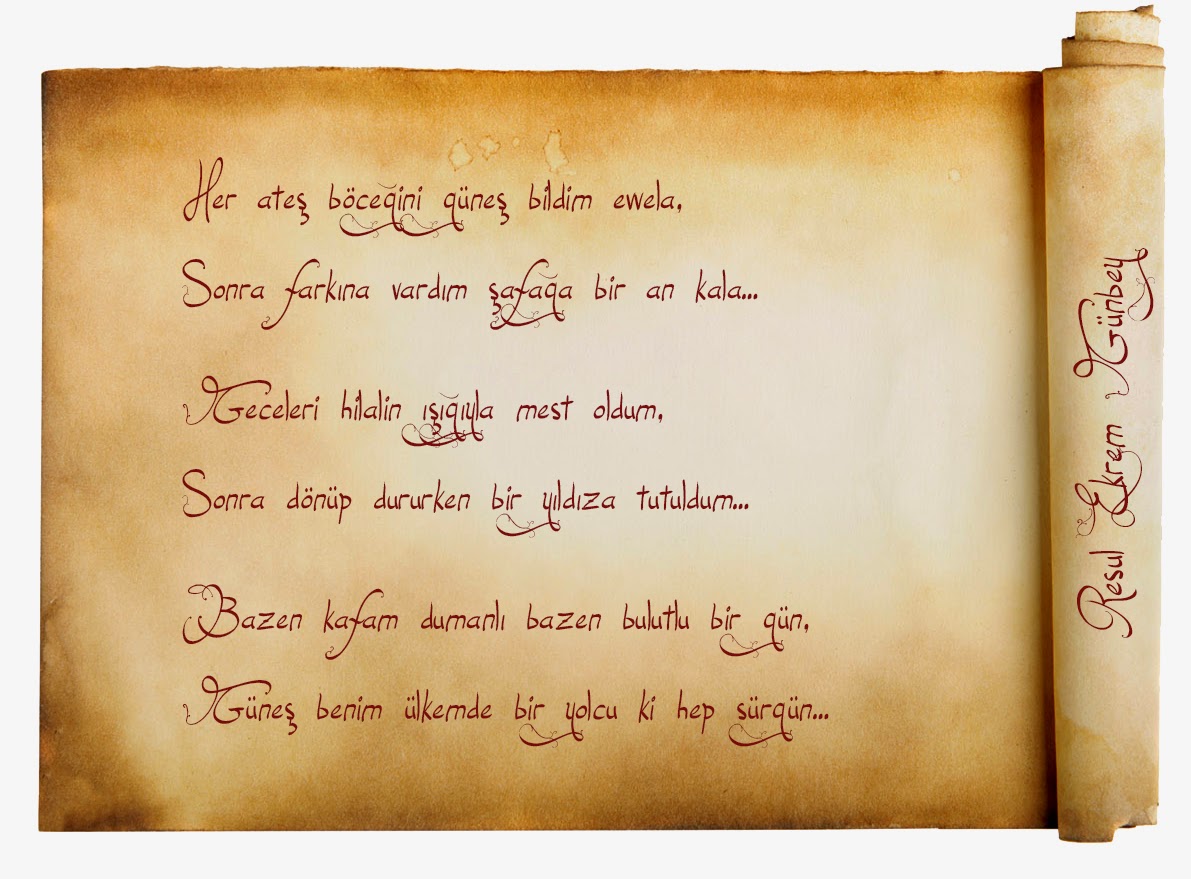 Her ateş böceğini güneş bildim ewela,
Sonra farkına vardım şafağa bir an kala...
Geceleri hilalin ışığıyla mest oldum,
Sonra dönüp dururken bir yıldıza tutuldum...
Bazen kafam dumanlı bazen bulutlu bir gün,
Güneş benim ülkemde bir yolcu ki hep sürgün...
Resul Ekrem Günbey